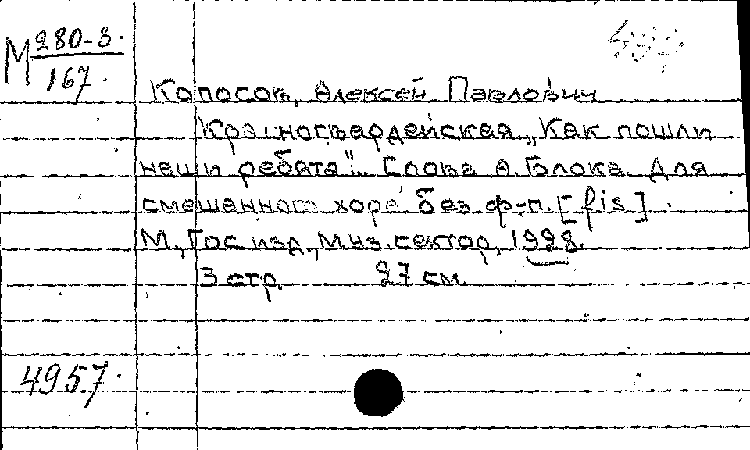 М 280-3.
167.
Колосов, Алексей Павлович
Красногвардейская „Как пошли
наши ребята". Слова А. Блока. Для
смешанного хора без ф-п. [fis].
М., Гос. изд., Муз. сектор, 1928.
3 стр. 27 см.
4957.